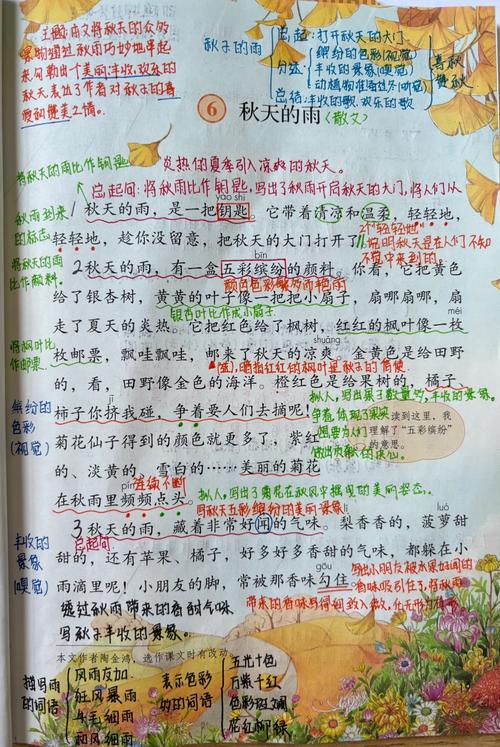 主题:课文将秋天的众多
景物通过秋雨巧妙地串起
来,勾勒出个美丽、丰收、欢乐的
秋天,表达了作者对秋天的喜
爱和赞美之情。
秋天的雨
总起:打开秋天的大门
分述
缤纷的色彩(视觉)
丰收的景象(嗅觉)
动植物准备过冬(听觉)
总结:丰收的歌、欢乐的歌
喜秋
赞秋
6 秋天的雨(散文)
将秋天的雨比作钥匙
炎热的夏季引入凉爽的秋天。
总起句:将秋雨比作钥匙,写出了秋雨开启秋天的大门,将人们从
yào shi
1秋天的雨,是一把钥匙。它带着清凉和温柔,轻轻地,
秋雨到来
的标志
轻轻地,趁你没留意,把秋天的大门打开了。
2个"轻轻地"
说明秋天是在人们不知
不觉中来到的。
将秋天的雨
比作颜料。
bīn
2秋天的雨,有一盒五彩缤纷的颜料。你看,它把黄色
颜色色彩繁多而艳丽
给了银杏树,黄黄的叶子像一把把小扇子,扇哪扇哪,扇
银杏叶比作成小扇子
méi
走了夏天的炎热。它把红色给了枫树,红红的枫叶像一枚
将枫叶比
作邮票。
shuǎng
枚邮票,飘哇飘哇,邮来了秋天的凉爽。金黄色是给田野
的,看,田野像金色的海洋。橙红色是给果树的,橘子、
缤纷的
色彩
(视觉)
柿子你挤我碰,争着要人们去摘呢!
读到这里,我
理解了“五彩缤纷”
的意思。
菊花仙子得到的颜色就更多了,紫红
的、淡黄的、雪白的……美丽的菊花
pín
连续不断
在秋雨里频频点头。
拟人,写出了菊花在秋风中摇曳的美丽姿态。
写秋天五彩缤纷的美丽景象
丰收的
景象
(嗅觉)
总起句
luó
3秋天的雨,藏着非常好闻的气味。梨香香的,菠萝甜
甜的,还有苹果、橘子,好多好多香甜的气味,都躲在小
gōu
雨滴里呢!小朋友的脚,常被那香味勾住。
写出小朋友被水果好闻的
香味吸引住了,将秋雨
带来的香味写得
通过秋雨带来的香甜气味
写秋季丰收的景象。
本文作者陶金鸿,选作课文时有改动。
描写雨
的词语
风雨交加
狂风暴雨
牛毛细雨
和风细雨
表示色彩
多的词语
五光十色
万紫千红
色彩斑斓
花红柳绿